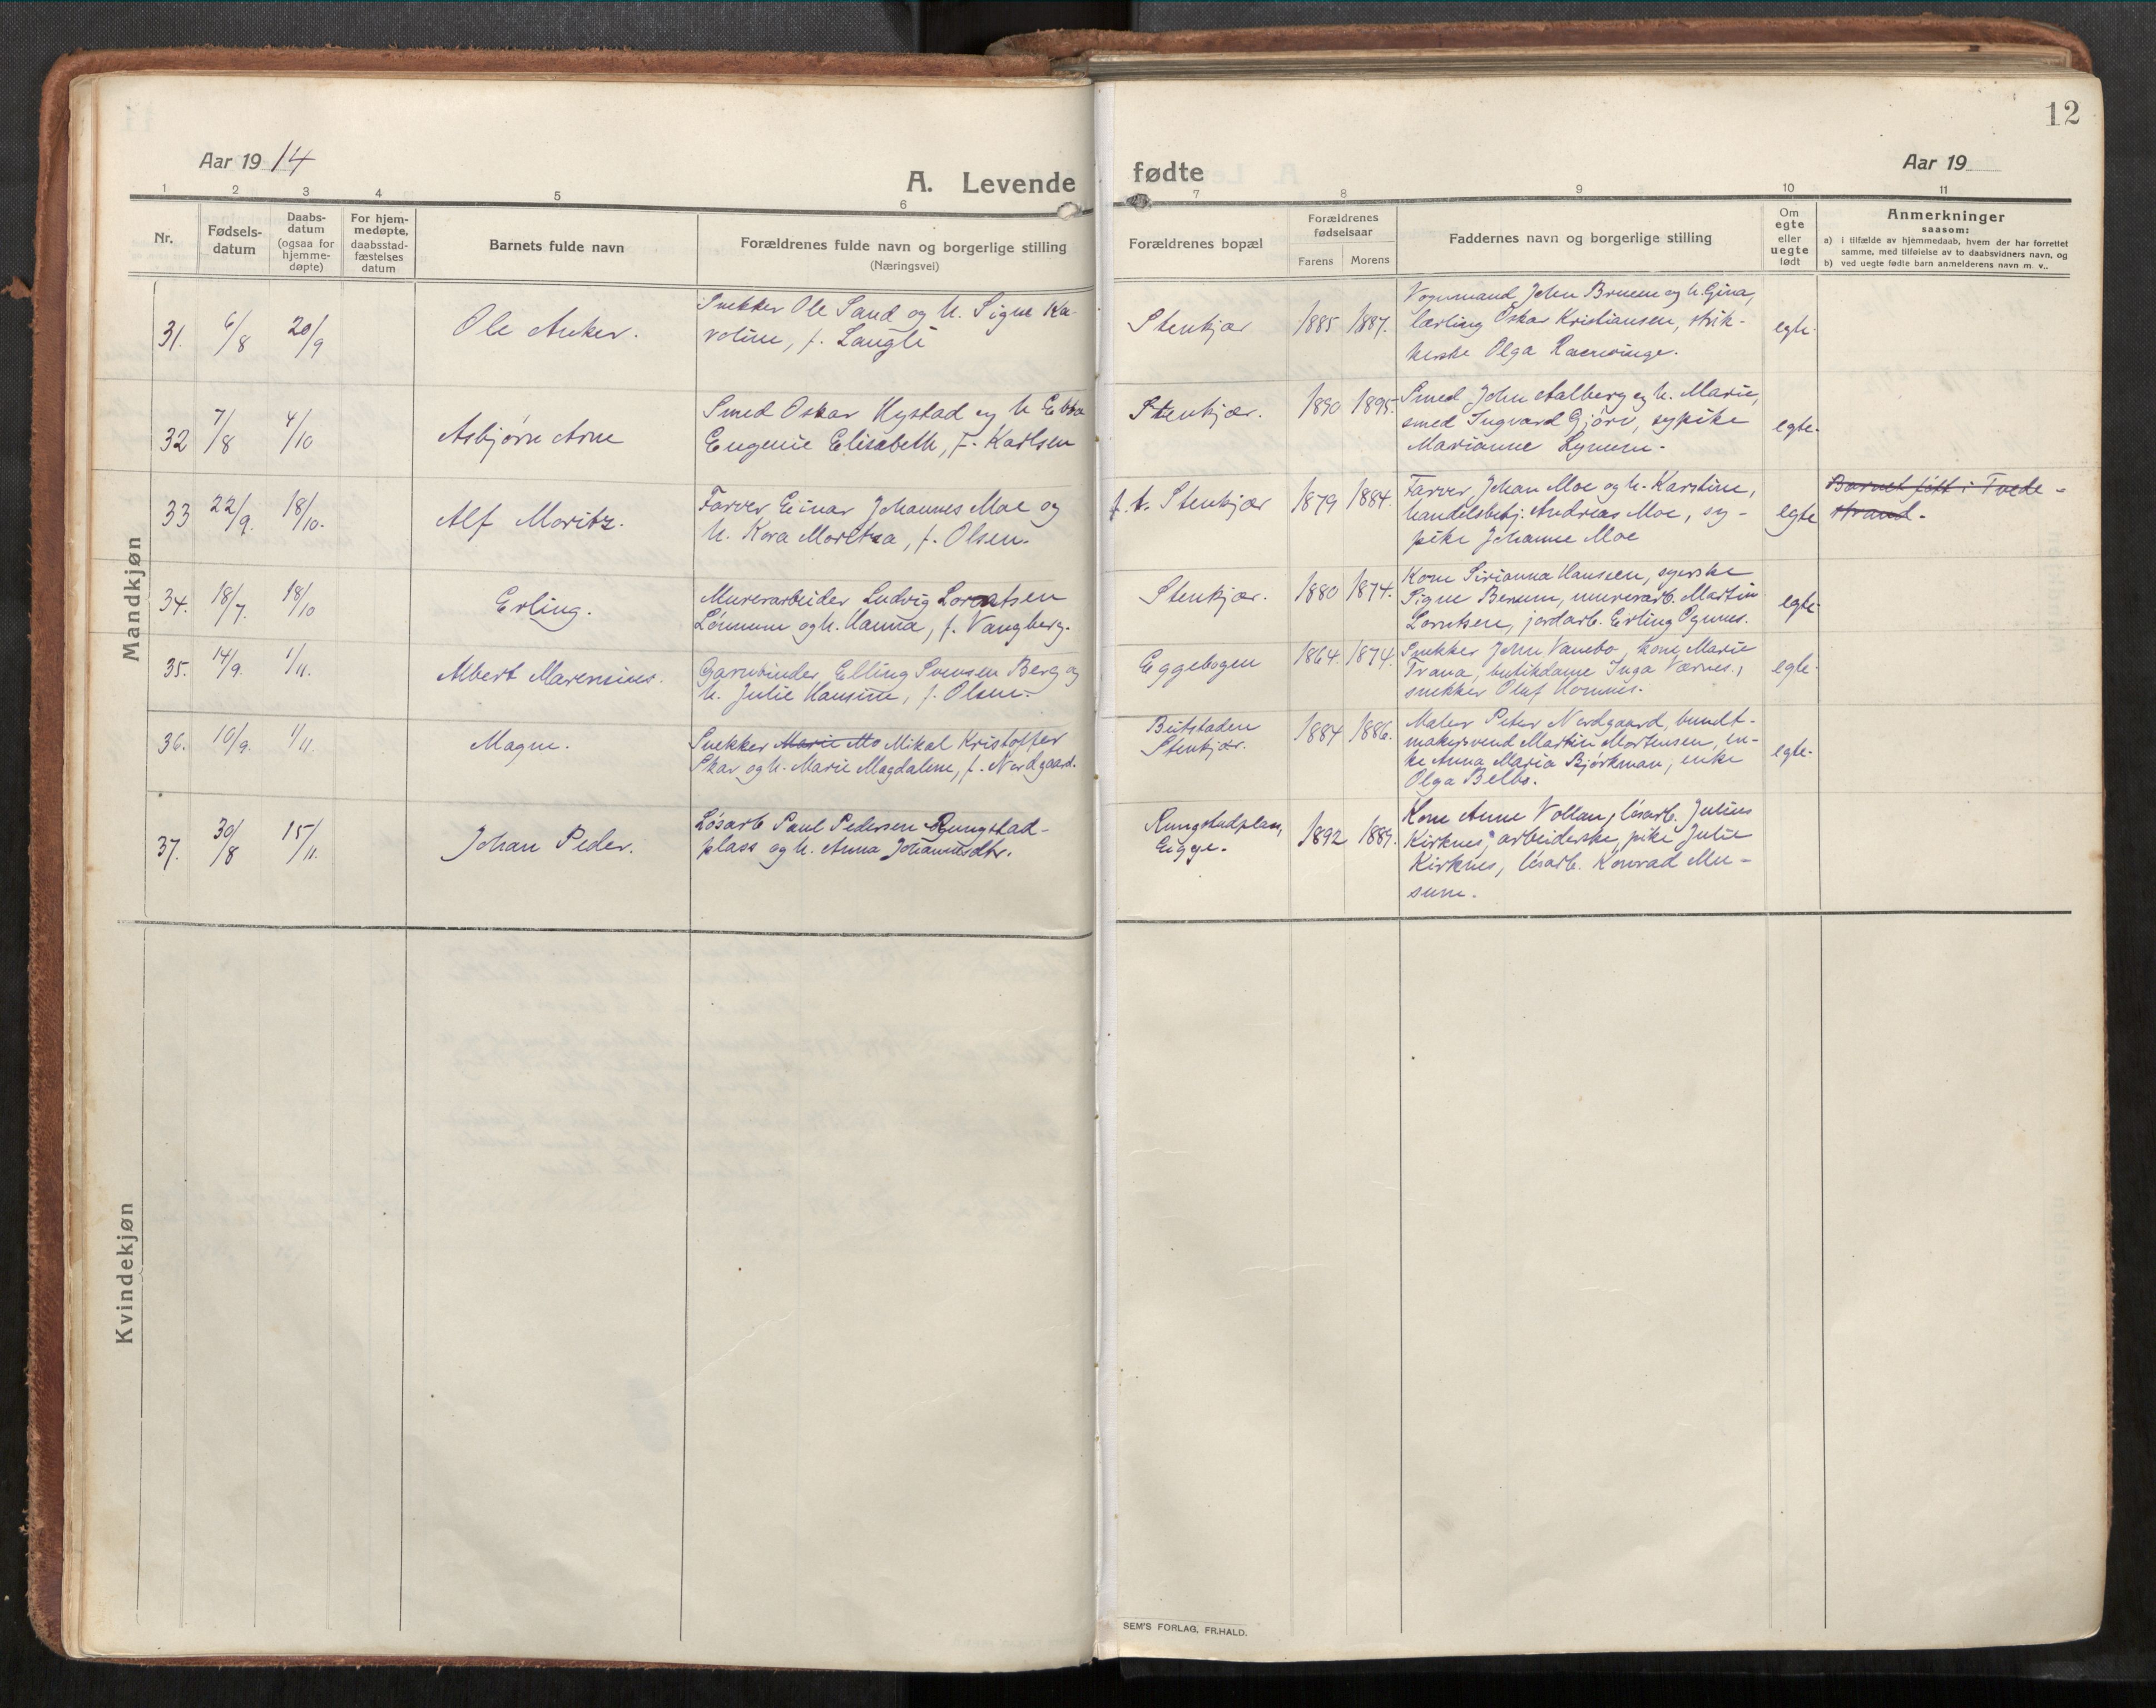 12
Aar 19 14
A. Levende fødte
Aar 19
1 2 3 4 5 6 7 8 9 10 11
Nr.
Fødsels-
datum
Daabs-
datum
(ogsaa for
hjemme-
døpte)
For hjem-
medøpte,
daabsstad-
fæstelses
datum
Barnets fulde navn
Forældrenes fulde navn og borgerlige stilling
(Næringsvei)
Forældrenes bopæl
Forældrenes
fødselsaar
Farens Morens
Faddernes navn og borgerlige stilling
Om
egte
eller
uegte
født
Anmerkninger
saasom:
a) i tilfælde av hjemmedaab, hvem der har forrettet
samme, med tilføielse av to daabsvidners navn, og
b) ved uegte fødte barn anmelderens navn m. v..
Mandkjøn
31. 6/8 20/9 Ole Anker.
Snekker Ole Sand og h. Signe Ka-
roline, f. Langli
Stenkjær 1885 1887.
Vognmand John Bruem og h. Gina,
lærling Oskar Kristiansen, strik-
kerske Olga
egte
32 7/8 4/10 Asbjørn Arne
Smed Oskar Hystad og h Ebba
Eugenie Elisabeth, f. Karlsen
Stenkjær. 1890 1895.
Smed John Aalberg og h. Marie,
smed Ingvard Gjørv, sypike
Marianne Lynum.
egte.
33 22/9. 18/10. Alf Moritz.
Farver Einar Johannes Moe og
h. Kora Moretza, f. Olsen.
f.t. Stenkjær 1879 1884.
Farver Johan Moe og h. Karstine,
handelsbetj. Andreas Moe, sy-
pike Johanne Moe
egte
Barnet født i Tvede-
strand.
34. 18/7. 18/10 Erling.
Murerarbeider Ludvig Lorntsen
Lønnum og h. Hanna, f. Vangberg.
Stenkjær. 1880 1874.
Kone Sirianna Hansen, syerske
Signe Benum, murerarb. Martin
Lorntsen, jordarb. Erling Ognnes.
egte
35. 14/9. 1/11. Albert Marensius.
Garnbinder Elling Svensen Berg og
h. Julie Hansine, f. Olsen.
Eggebogen 1864. 1874.
Snekker John Vanebo, kone Marie
Trana, butikdame Inga Værnes,
snekker Oluf Homnes.
egte
36. 10/9. 1/11. Magne.
Snekker Marie Mo Mikal Kristoffer
Skar og h. Marie Magdalene, f. Nordgaard.
Beitstaden
Stenkjær.
1884 1886.
Maler Peter Nordgaard, bundt-
makersvend Martin Mortensen, en-
ke Anna Maria Bjørkman, enke
Olga Belbo.
egte.
37. 30/8 15/11. Johan Peder.
Løsarb Paul Pedersen Rungstad-
plass og h. Anna Johannesdtr.
Rungstadplass,
Eigge.
1892 1889.
Kone Anne Vollan, løsarb. Julius
Kirknes, arbeiderske, pike Julie
Kirknes, løsarb. Konrad Mu-
sum.
Kvindekjøn
SEM'S FORLAG, FR.HALD.